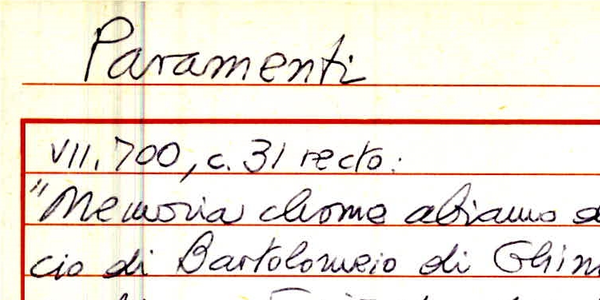 Paramenti
VII. 700, c. 31 recto:
"Memoria chome abiamo
cio di Bartolomeio di